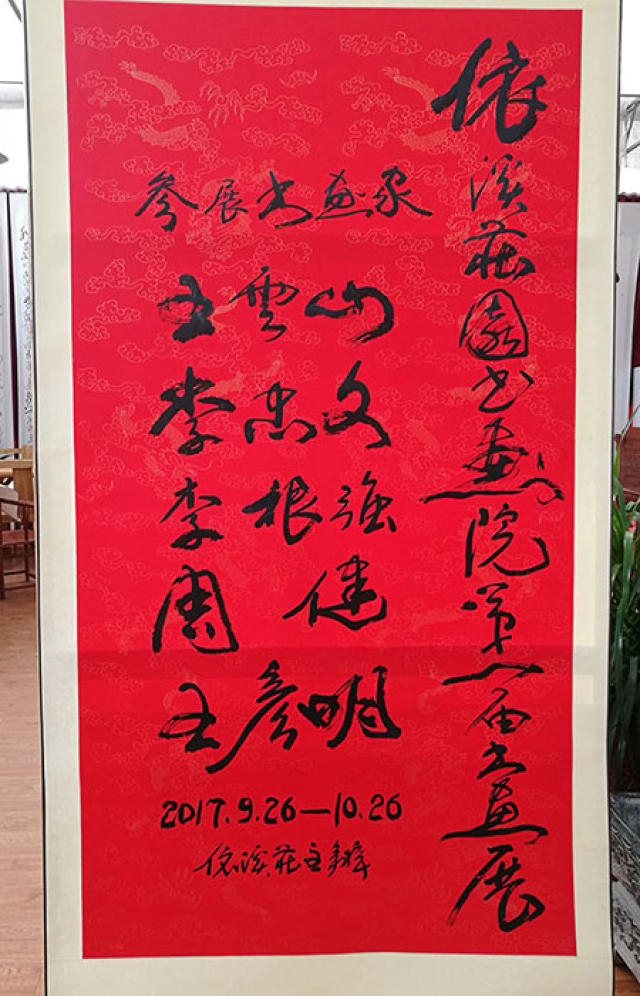 依溪莊園书画院第一届书画展
参展书画家
王雲山
李忠文
李根強
周健
王彦明
2017.9.26—10.26
依溪莊主辦